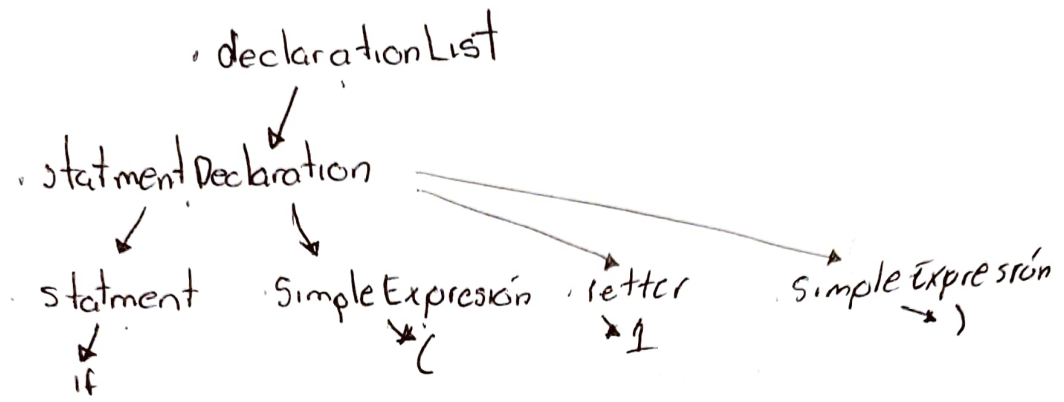 declarationList
statmentDeclaration
statment SimpleExpresión letter SimpleExpresión
if ( 1 )